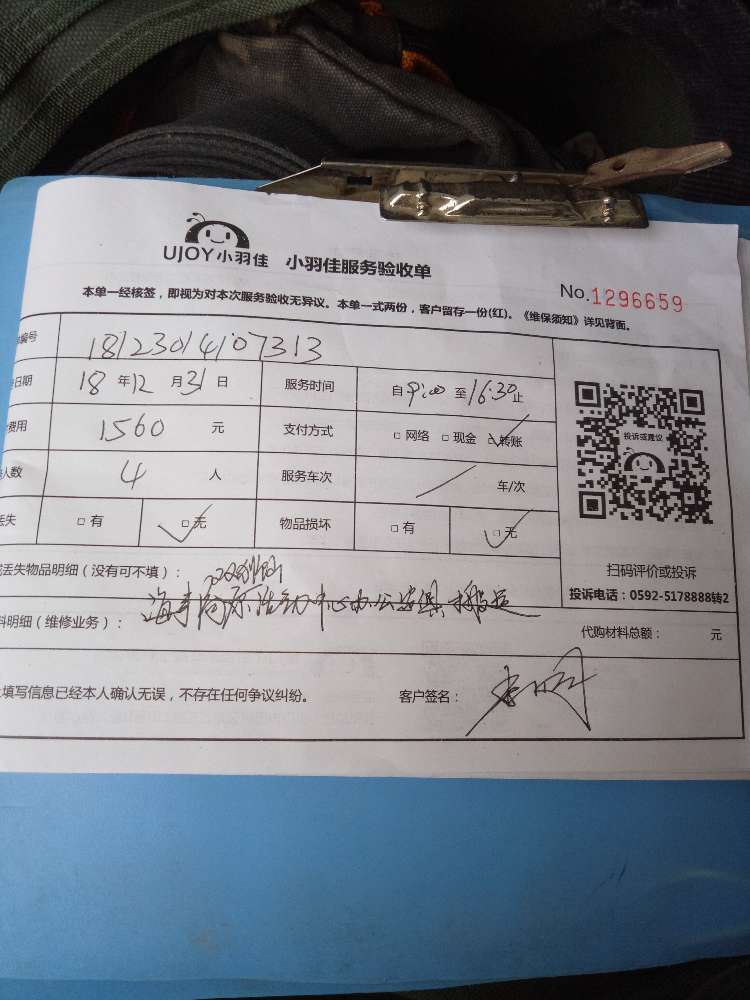 UJOY小羽佳 小羽佳服务验收单
No.1296659
本单一经核签，即视为对本次服务验收无异议。本单一式两份，客户留存一份(红)。《维保须知》详见背面。
编号 18123014107313
日期 18 年 12 月 31 日 服务时间 自 9:00 至 16:30 止
费用 1560 元 支付方式 □ 网络 □ 现金 □ 转账
人数 4 人 服务车次 / 车/次
丢失 □ 有 □ 无 物品损坏 □ 有 □ 无
投诉或建议
扫码评价或投诉
投诉电话：0592-5178888转2
丢失物品明细（没有可不填）：
活动中心办公家具 搬运
料明细（维修业务）：
代购材料总额： 元
填写信息已经本人确认无误，不存在任何争议纠纷。 客户签名：